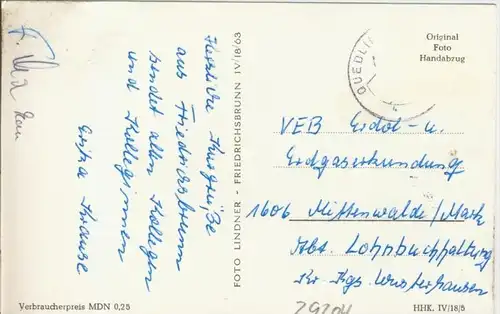 Herzliche Kurgrüße
aus Friedrichsbrunn
sendet allen Kollegen
und Kolleginnen
Erika Krause
FOTO LINDNER - FRIEDRICHSBRUNN IV/18/63
Original
Foto
Handabzug
QUEDLI
VEB Erdöl- u.
Erdgaserkundung
1606 Mittenwalde/Mark
Abt. Lohnbuchhaltung
Kr Kgs Wusterhausen
29204
Verbraucherpreis MDN 0,25
HHK. IV/18/5